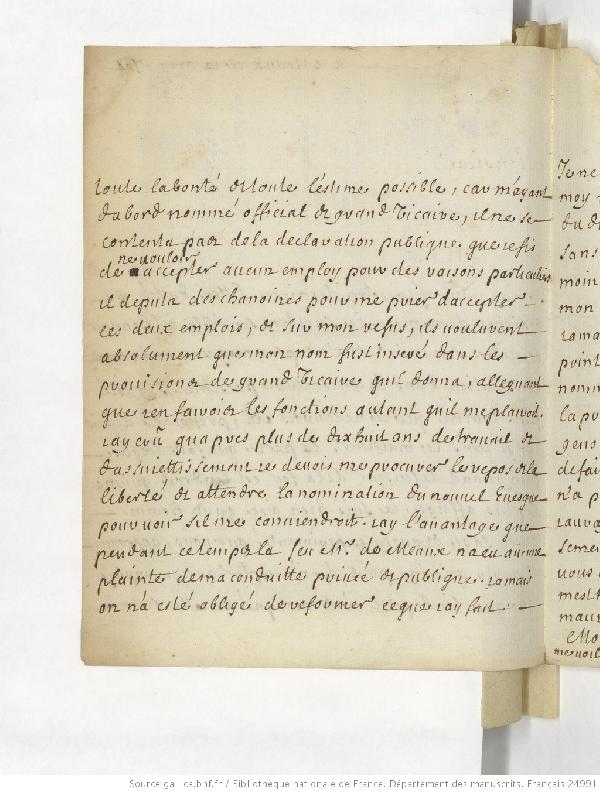 toute la bonté et toute l'estime possible, car m'ayant
d'abord nommé official et grand Vicaire, il ne se
contenta pas de la declaration publique que je fis
ne vouloir
de accepter aucun employ pour des raisons particulieres
il deputa des chanoines pour me prier d'accepter
ces deux emplois, et sur mon refus, ils voulurent
absolument que mon nom fust inseré dans les
provisions de grand Vicaire qu'il donna, alleguant
que j'en favois les fonctions autant qu'il me plairoit.
j'ay crû qu'apres plus de dixhuit ans de travail et
d'assujettissement je devois me procurer le repos et la
liberté et attendre la nomination du nouvel Evesque
pour voir s'il me conviendroit. j'ay l'avantage que
pendant ce temps la feu Mr. de Meaux n'a eu aucune
plainte de ma conduitte privée et publique. jamais
on n'a esté obligé de reformer ce que j'ay fait.
Je ne
moy
du d
sans
moin
mon
jama
point
nomm
la pr
gens
de fai
n'a p
j'auva
semen
vous
mest
maur
Mo
me voil
Source gallica.bnf.fr / Bibliothèque nationale de France. Département des manuscrits. Français 24991